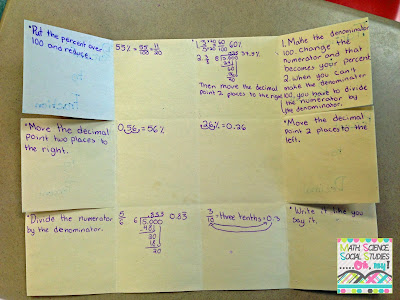 •Put the percent over
100 and reduce.
55% = 55/100 = 11/20
60%
37.5%
8 5.000
Then move the decimal
point 2 places to the right
1. Make the denominator
100. Change the
numerator and that
becomes your percent
2. When you can't
make the denominator
100, you have to divide
the numerator by
the denominator.
•Move the decimal
point two places to
the right.
0.56 = 56%
26% = 0.26
•Move the decimal
point 2 places to the
left.
•Divide the numerator
by the denominator.
5/6
.833
6 5.000
48
20
18
20
0.83
3/10 = three tenths = 0.3
•Write it like you
say it.
MATH, SCIENCE,
SOCIAL STUDIES
......Oh, my!